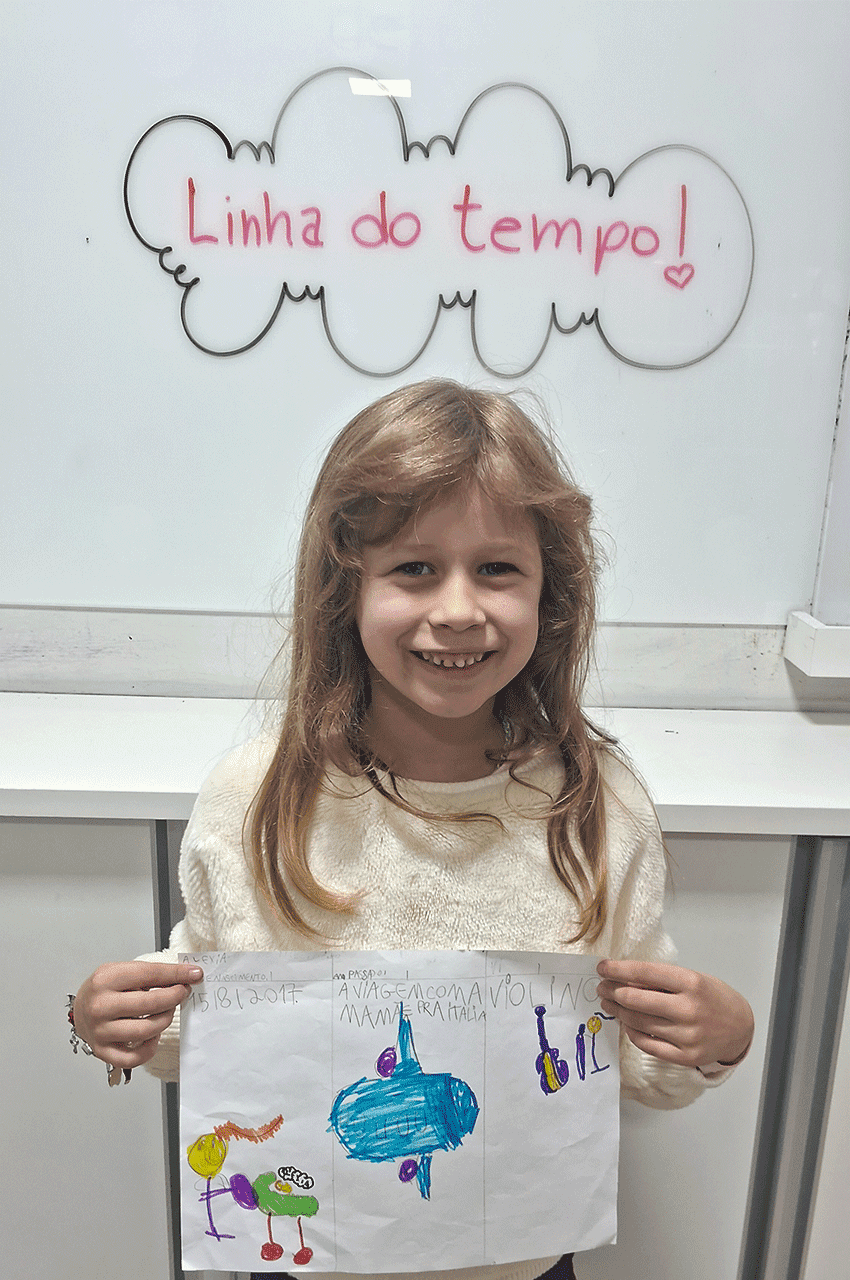 Linha do tempo!
ALEXIA
NASCIMENTO!
15/8/2017.
ano PASSADO!
A VIAGEM COM A
MAMÃE PRA ITALIA
VIOLINO